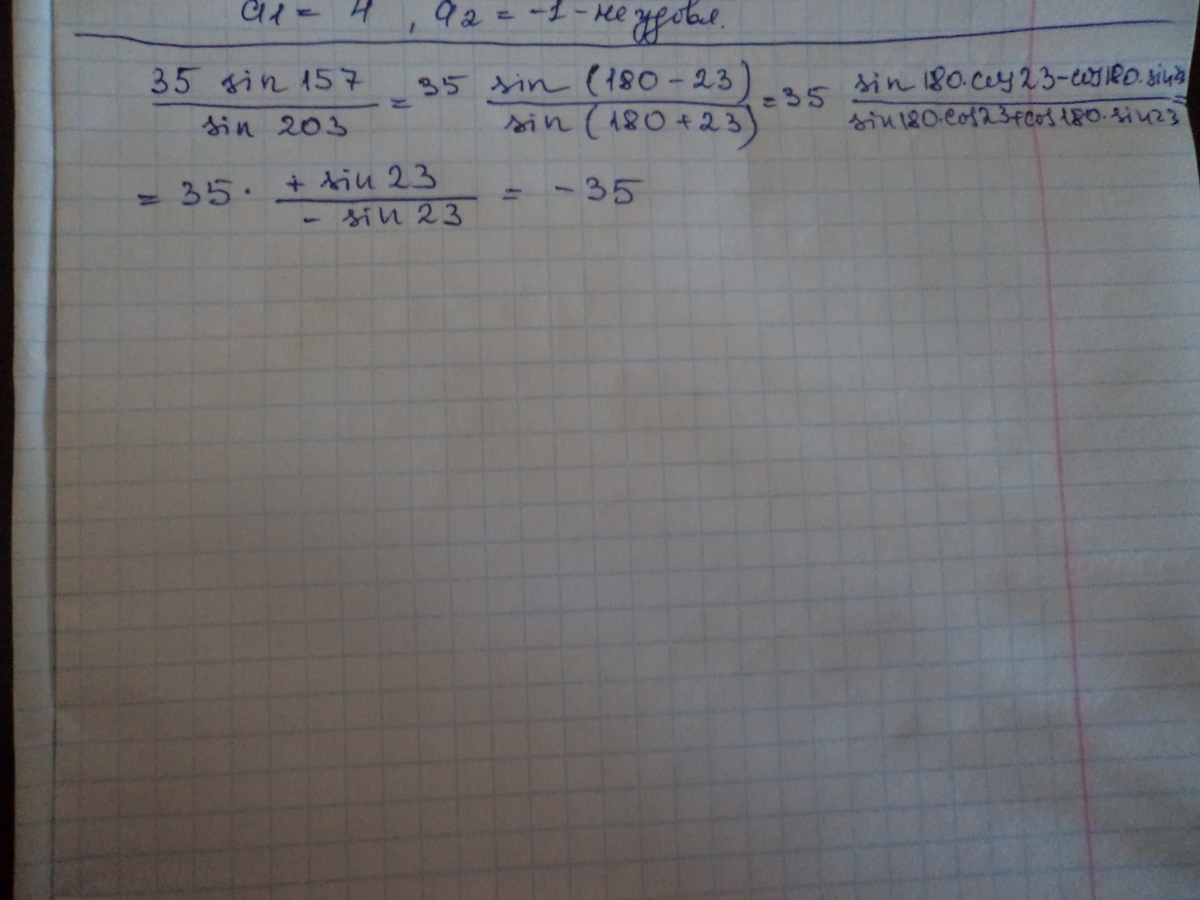 a1 = 4 , a2 = -1 - не удовл.
35 sin 157 / sin 203 = 35 sin (180 - 23) / sin (180 + 23) = 35 sin 180·cos 23 - cos 180·sin 23 / sin 180·cos 23 + cos 180·sin 23 =
= 35 · + sin 23 / - sin 23 = - 35